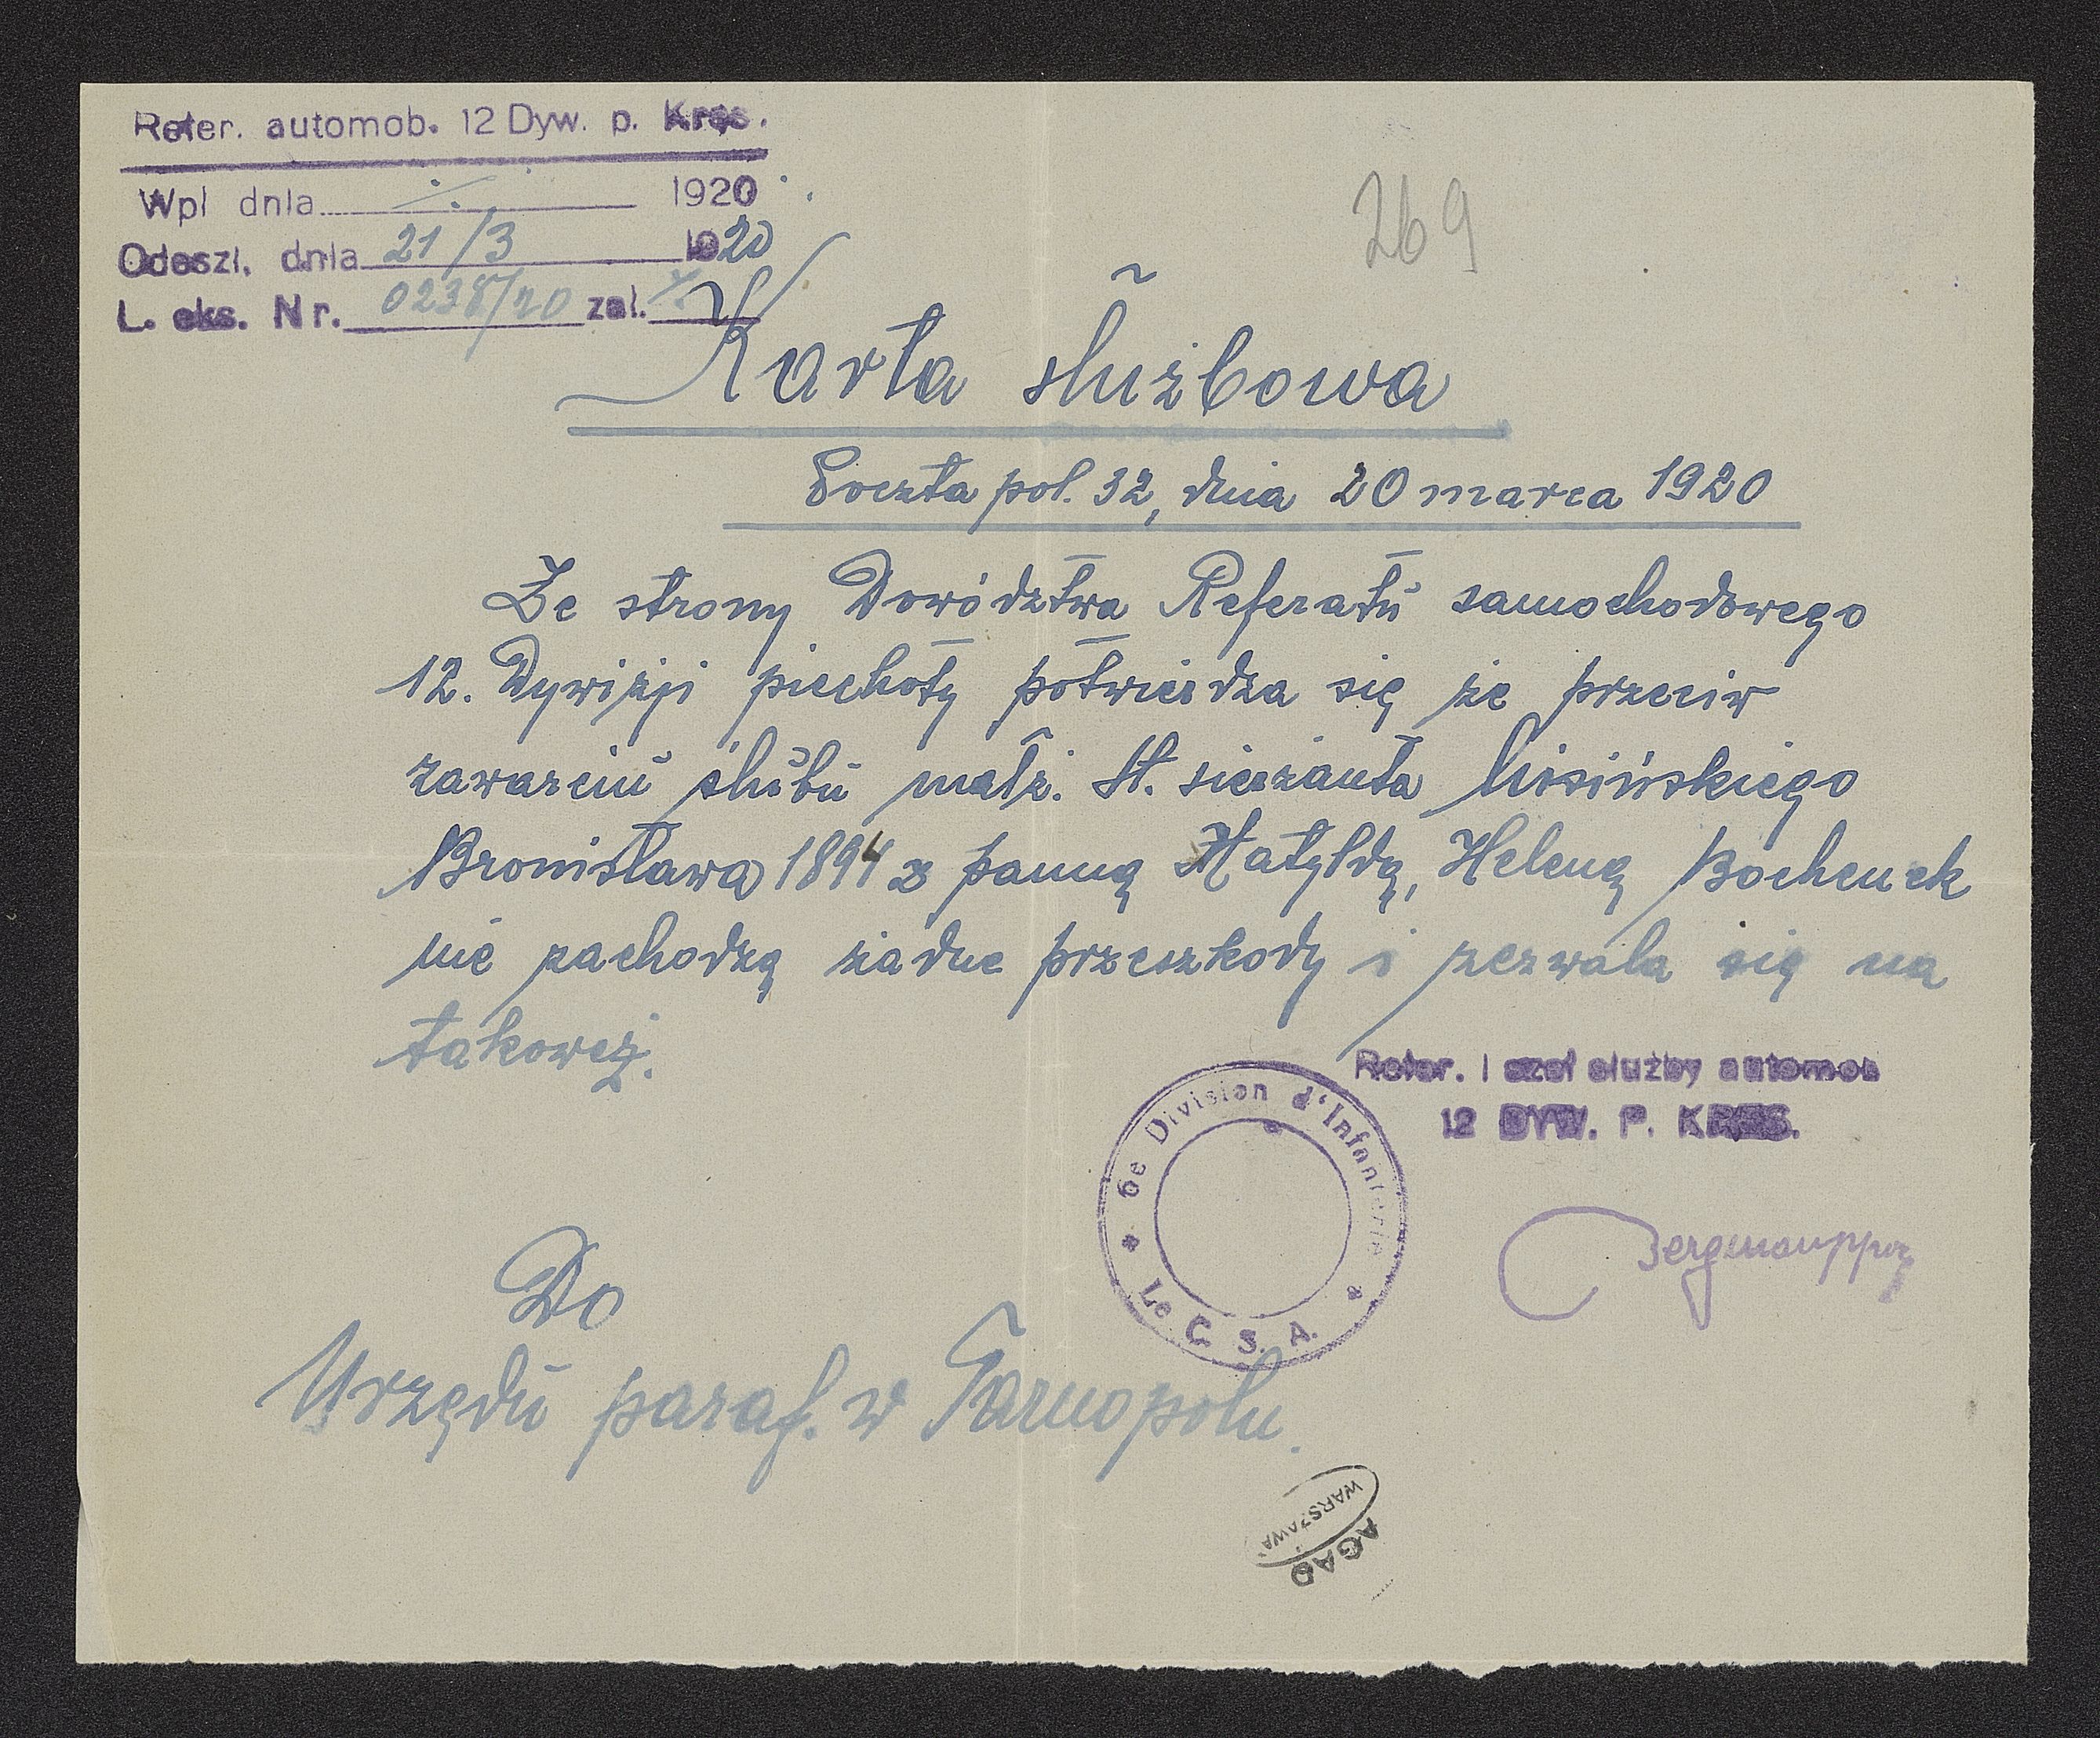 Refer. automob. 12 Dyw. p. Kres.
Wpl dnia ./. 1920
Odeszl. dnia 21/3 1920
L. eks. Nr. 0238/20 zal. ./.
269
Karta służbowa
Poczta pol. 32, dnia 20 marca 1920
Ze strony Dowództwa Referatu samochodowego
12. Dywizji piechoty potwierdza się że przeciw
zawarciu ślubu małż. St. sierżanta Lisińskiego
Bronisława 1894 z panną Matyldą, Heleną Bochenek
nie zachodzą żadne przeszkody i zezwala się na
takowež.
Refer. i szef służby automob
12 DYW. P. KRES.
6e Division d'Infanterie
Le C. S. A.
Bergman ppor
Do
Urzędu paraf. w Tarnopolu.
WARSZAWA
AGAD